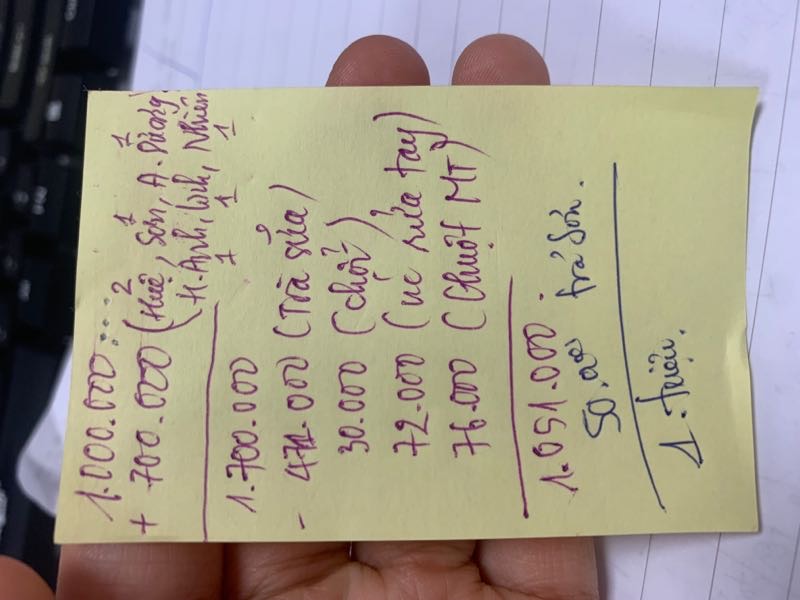 1.000.000 ...
2 1 1
+ 700.000 (Huệ, Sơn, A. Dương
H. Ánh, Nhiên
1 1 1
1.700.000
- 471.000 (Trà sữa)
30.000 (chổi)
72.000 (nc rửa tay)
76.000 (Chuột MT)
1.051.000.
50.000 trả Sơn.
1. triệu.